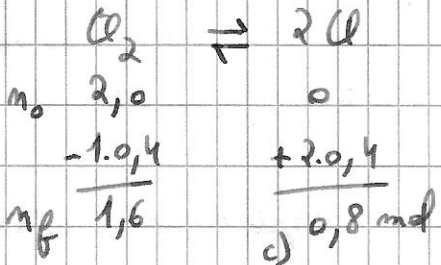 Cl₂ ⇌ 2 Cl
n₀ 2,0 0
-1.0,4 +2.0,4
n_f 1,6 0,8 mol
c)